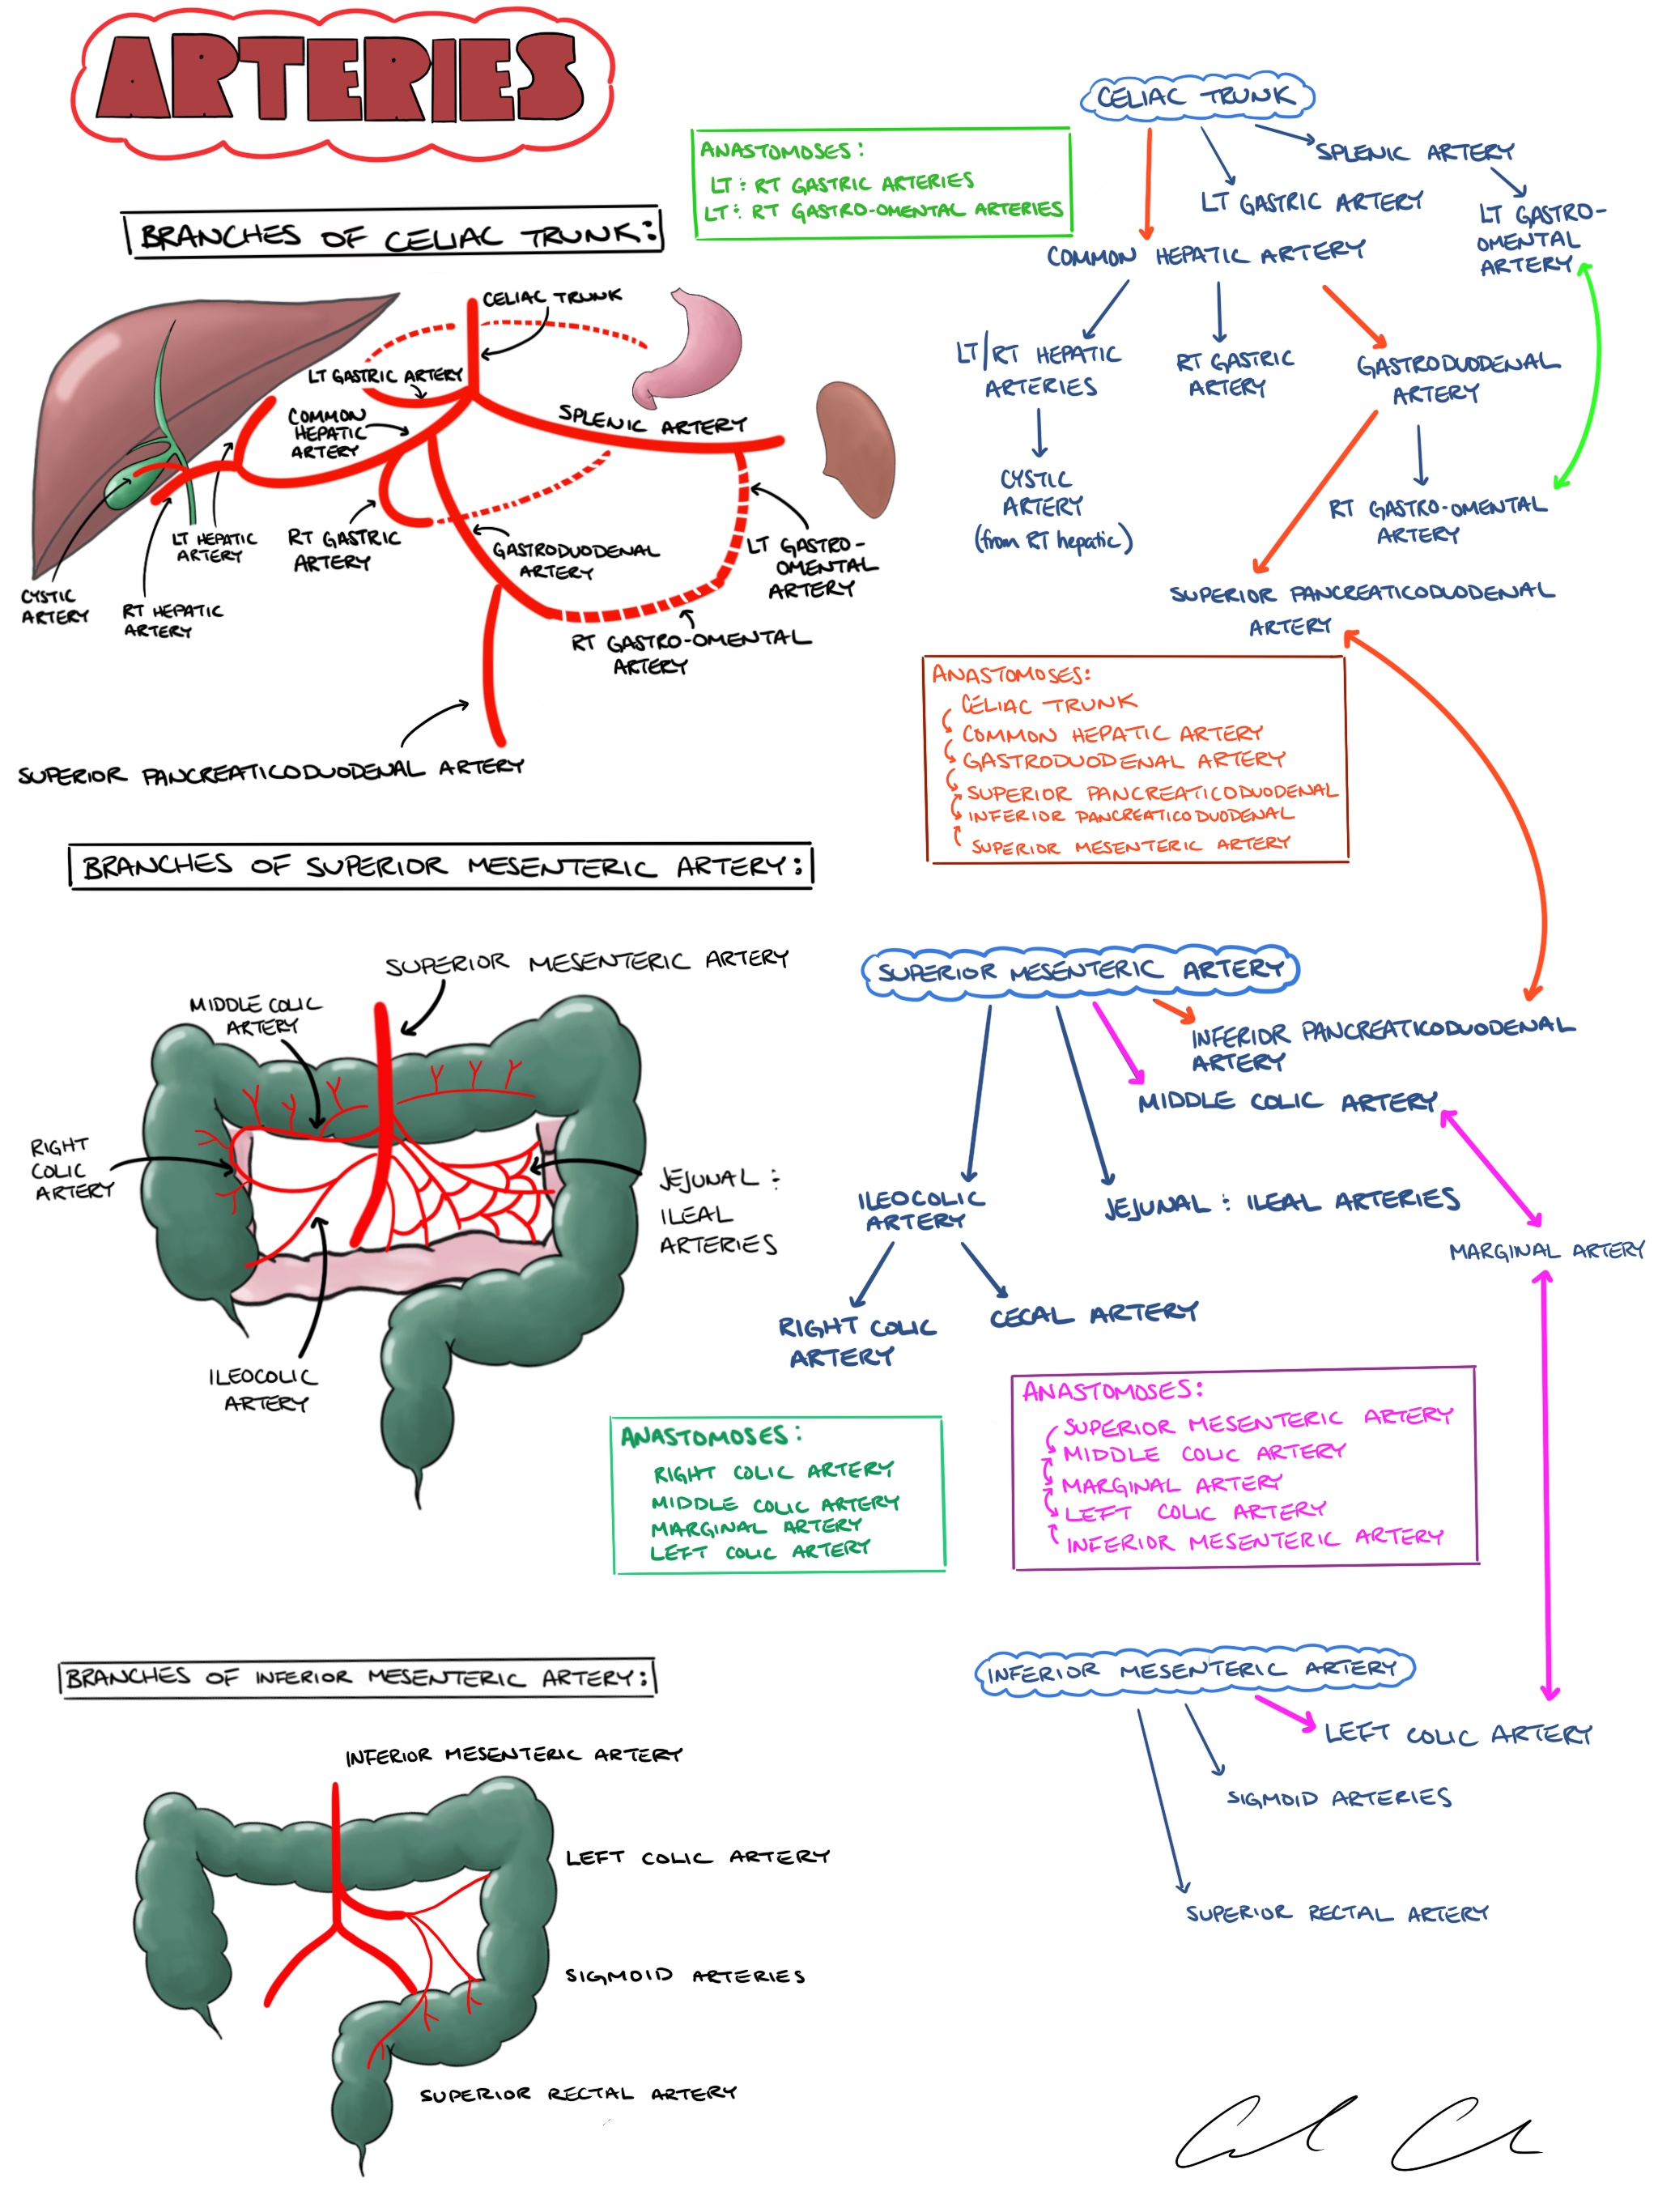 ARTERIES
BRANCHES OF CELIAC TRUNK:
CELIAC TRUNK
LT GASTRIC ARTERY
COMMON
HEPATIC
ARTERY
SPLENIC ARTERY
LT HEPATIC
ARTERY
RT GASTRIC
ARTERY
GASTRODUODENAL
ARTERY
LT GASTRO-
OMENTAL
ARTERY
CYSTIC
ARTERY
RT HEPATIC
ARTERY
RT GASTRO-OMENTAL
ARTERY
SUPERIOR PANCREATICODUODENAL ARTERY
ANASTOMOSES:
LT : RT GASTRIC ARTERIES
LT : RT GASTRO-OMENTAL ARTERIES
CELIAC TRUNK
SPLENIC ARTERY
LT GASTRIC ARTERY
LT GASTRO-
OMENTAL
ARTERY
COMMON HEPATIC ARTERY
LT/RT HEPATIC
ARTERIES
RT GASTRIC
ARTERY
GASTRODUODENAL
ARTERY
CYSTIC
ARTERY
(from RT hepatic)
RT GASTRO-OMENTAL
ARTERY
SUPERIOR PANCREATICODUODENAL
ARTERY
ANASTOMOSES:
CELIAC TRUNK
COMMON HEPATIC ARTERY
GASTRODUODENAL ARTERY
SUPERIOR PANCREATICODUODENAL
INFERIOR PANCREATICODUODENAL
SUPERIOR MESENTERIC ARTERY
BRANCHES OF SUPERIOR MESENTERIC ARTERY:
SUPERIOR MESENTERIC ARTERY
MIDDLE COLIC
ARTERY
RIGHT
COLIC
ARTERY
JEJUNAL :
ILEAL
ARTERIES
ILEOCOLIC
ARTERY
SUPERIOR MESENTERIC ARTERY
INFERIOR PANCREATICODUODENAL
ARTERY
MIDDLE COLIC ARTERY
ILEOCOLIC
ARTERY
JEJUNAL : ILEAL ARTERIES
MARGINAL ARTERY
RIGHT COLIC
ARTERY
CECAL ARTERY
ANASTOMOSES:
RIGHT COLIC ARTERY
MIDDLE COLIC ARTERY
MARGINAL ARTERY
LEFT COLIC ARTERY
ANASTOMOSES:
SUPERIOR MESENTERIC ARTERY
MIDDLE COLIC ARTERY
MARGINAL ARTERY
LEFT COLIC ARTERY
INFERIOR MESENTERIC ARTERY
BRANCHES OF INFERIOR MESENTERIC ARTERY:
INFERIOR MESENTERIC ARTERY
LEFT COLIC ARTERY
SIGMOID ARTERIES
SUPERIOR RECTAL ARTERY
INFERIOR MESENTERIC ARTERY
LEFT COLIC ARTERY
SIGMOID ARTERIES
SUPERIOR RECTAL ARTERY